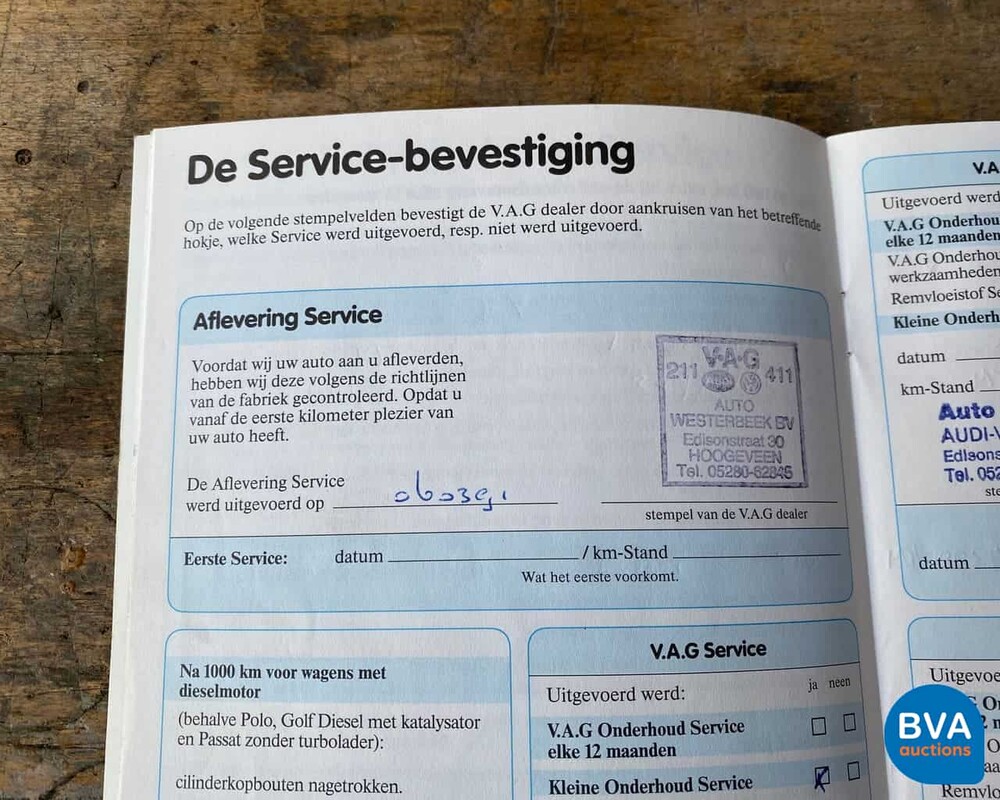 De Service-bevestiging
Op de volgende stempelvelden bevestigt de V.A.G dealer door aankruisen van het betreffende
hokje, welke Service werd uitgevoerd, resp. niet werd uitgevoerd.
Aflevering Service
Voordat wij uw auto aan u afleverden,
hebben wij deze volgens de richtlijnen
van de fabriek gecontroleerd. Opdat u
vanaf de eerste kilometer plezier van
uw auto heeft.
V·A·G
211 411
AUTO
WESTERBEEK BV
Edisonstraat 30
HOOGEVEEN
Tel. 05280-62845
De Aflevering Service
werd uitgevoerd op
stempel van de V.A.G dealer
Eerste Service: datum / km-Stand
Wat het eerste voorkomt.
Na 1000 km voor wagens met
dieselmotor
(behalve Polo, Golf Diesel met katalysator
en Passat zonder turbolader):
cilinderkopbouten nagetrokken.
V.A.G Service
Uitgevoerd werd: ja neen
V.A.G Onderhoud Service
elke 12 maanden
Kleine Onderhoud Service
V.A
Uitgevoerd werd
V.A.G Onderhou
elke 12 maanden
V.A.G Onderhou
werkzaamheden
Remvloeistof Se
Kleine Onderh
datum
km-Stand
Auto
AUDI-V
Edisons
Tel. 052
ste
datum
Uitgevoe
Remvlo
BVA
auctions